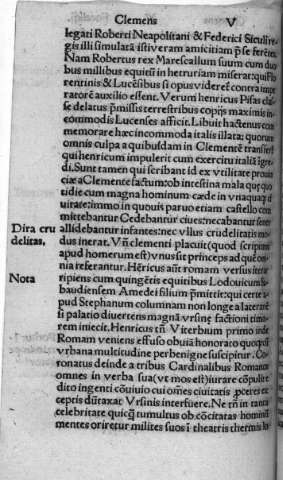 Clemens V
legati Roberci Neapolitani & Federici Siculi re-
gis illi simulatā istiveram amicitiam pse ferētes
Nam Robertus rex Marescallum suum cum duo
bus millibus equitū in hetruriam miserat: qui Flo
rentinis & Lucēsibus si opus videret contra impe
ratorē auxilio essent. Verum henricus Pisas clas
se delatus pmissis terrestribus copijs maximis in
commodis Lucenses afficit. Libuit hactenus com
memorare hæc incommoda italis illata: quorum
omnis culpa a quibusdam in Clementē transfert
qui henricum impulerit cum exercitu italiā igre
di. Sunt tamen qui scribant id ex vtilitate provin
ciæ a Clemente factum: ob intestina mala quę quo
tidie cum magna hominum cæde in vnaquaq ci
uitate: immo in quouis paruo etiam castello com
mittebantur Cedebantur ciues: necabantur senes
Dira cru allidebantur infantes: nec vllus crudelitatis mo-
delitas. dus inerat. Vn̄ clementi placuit (quod scriptum
apud homerum est) vnus sit princeps ad quē om
nia referantur. Hēricus aūt romam versus iter ar
Nota ripiens cum quingētis equitibus Lodouicum Sa
baudiensem Amedei filium pmittit: qui certe a-
pud Stephanum columnam non longe a lateranē
si palatio diuertens magnā vrsinę factioni timo-
rem iniecit. Henricus tn̄ Viterbium primo inde
Romam veniens effuso obuiā honorato quoq
vrbana multitudine perbenigne suscipitur. Co-
ronatus deinde a tribus Cardinalibus Romanos
omnes in verba sua (vt mos est) iurare cōpulit
dito ingenti cōuiuio cui omēs ciuitatis pceres ex
ceptis dūtaxat Vrsinis interfuere. Ne tn̄ in tanta
celebritate quicq tumultus ob cōcitatas hominū
mentes oriretur milites suos ī theatris thermis lo-